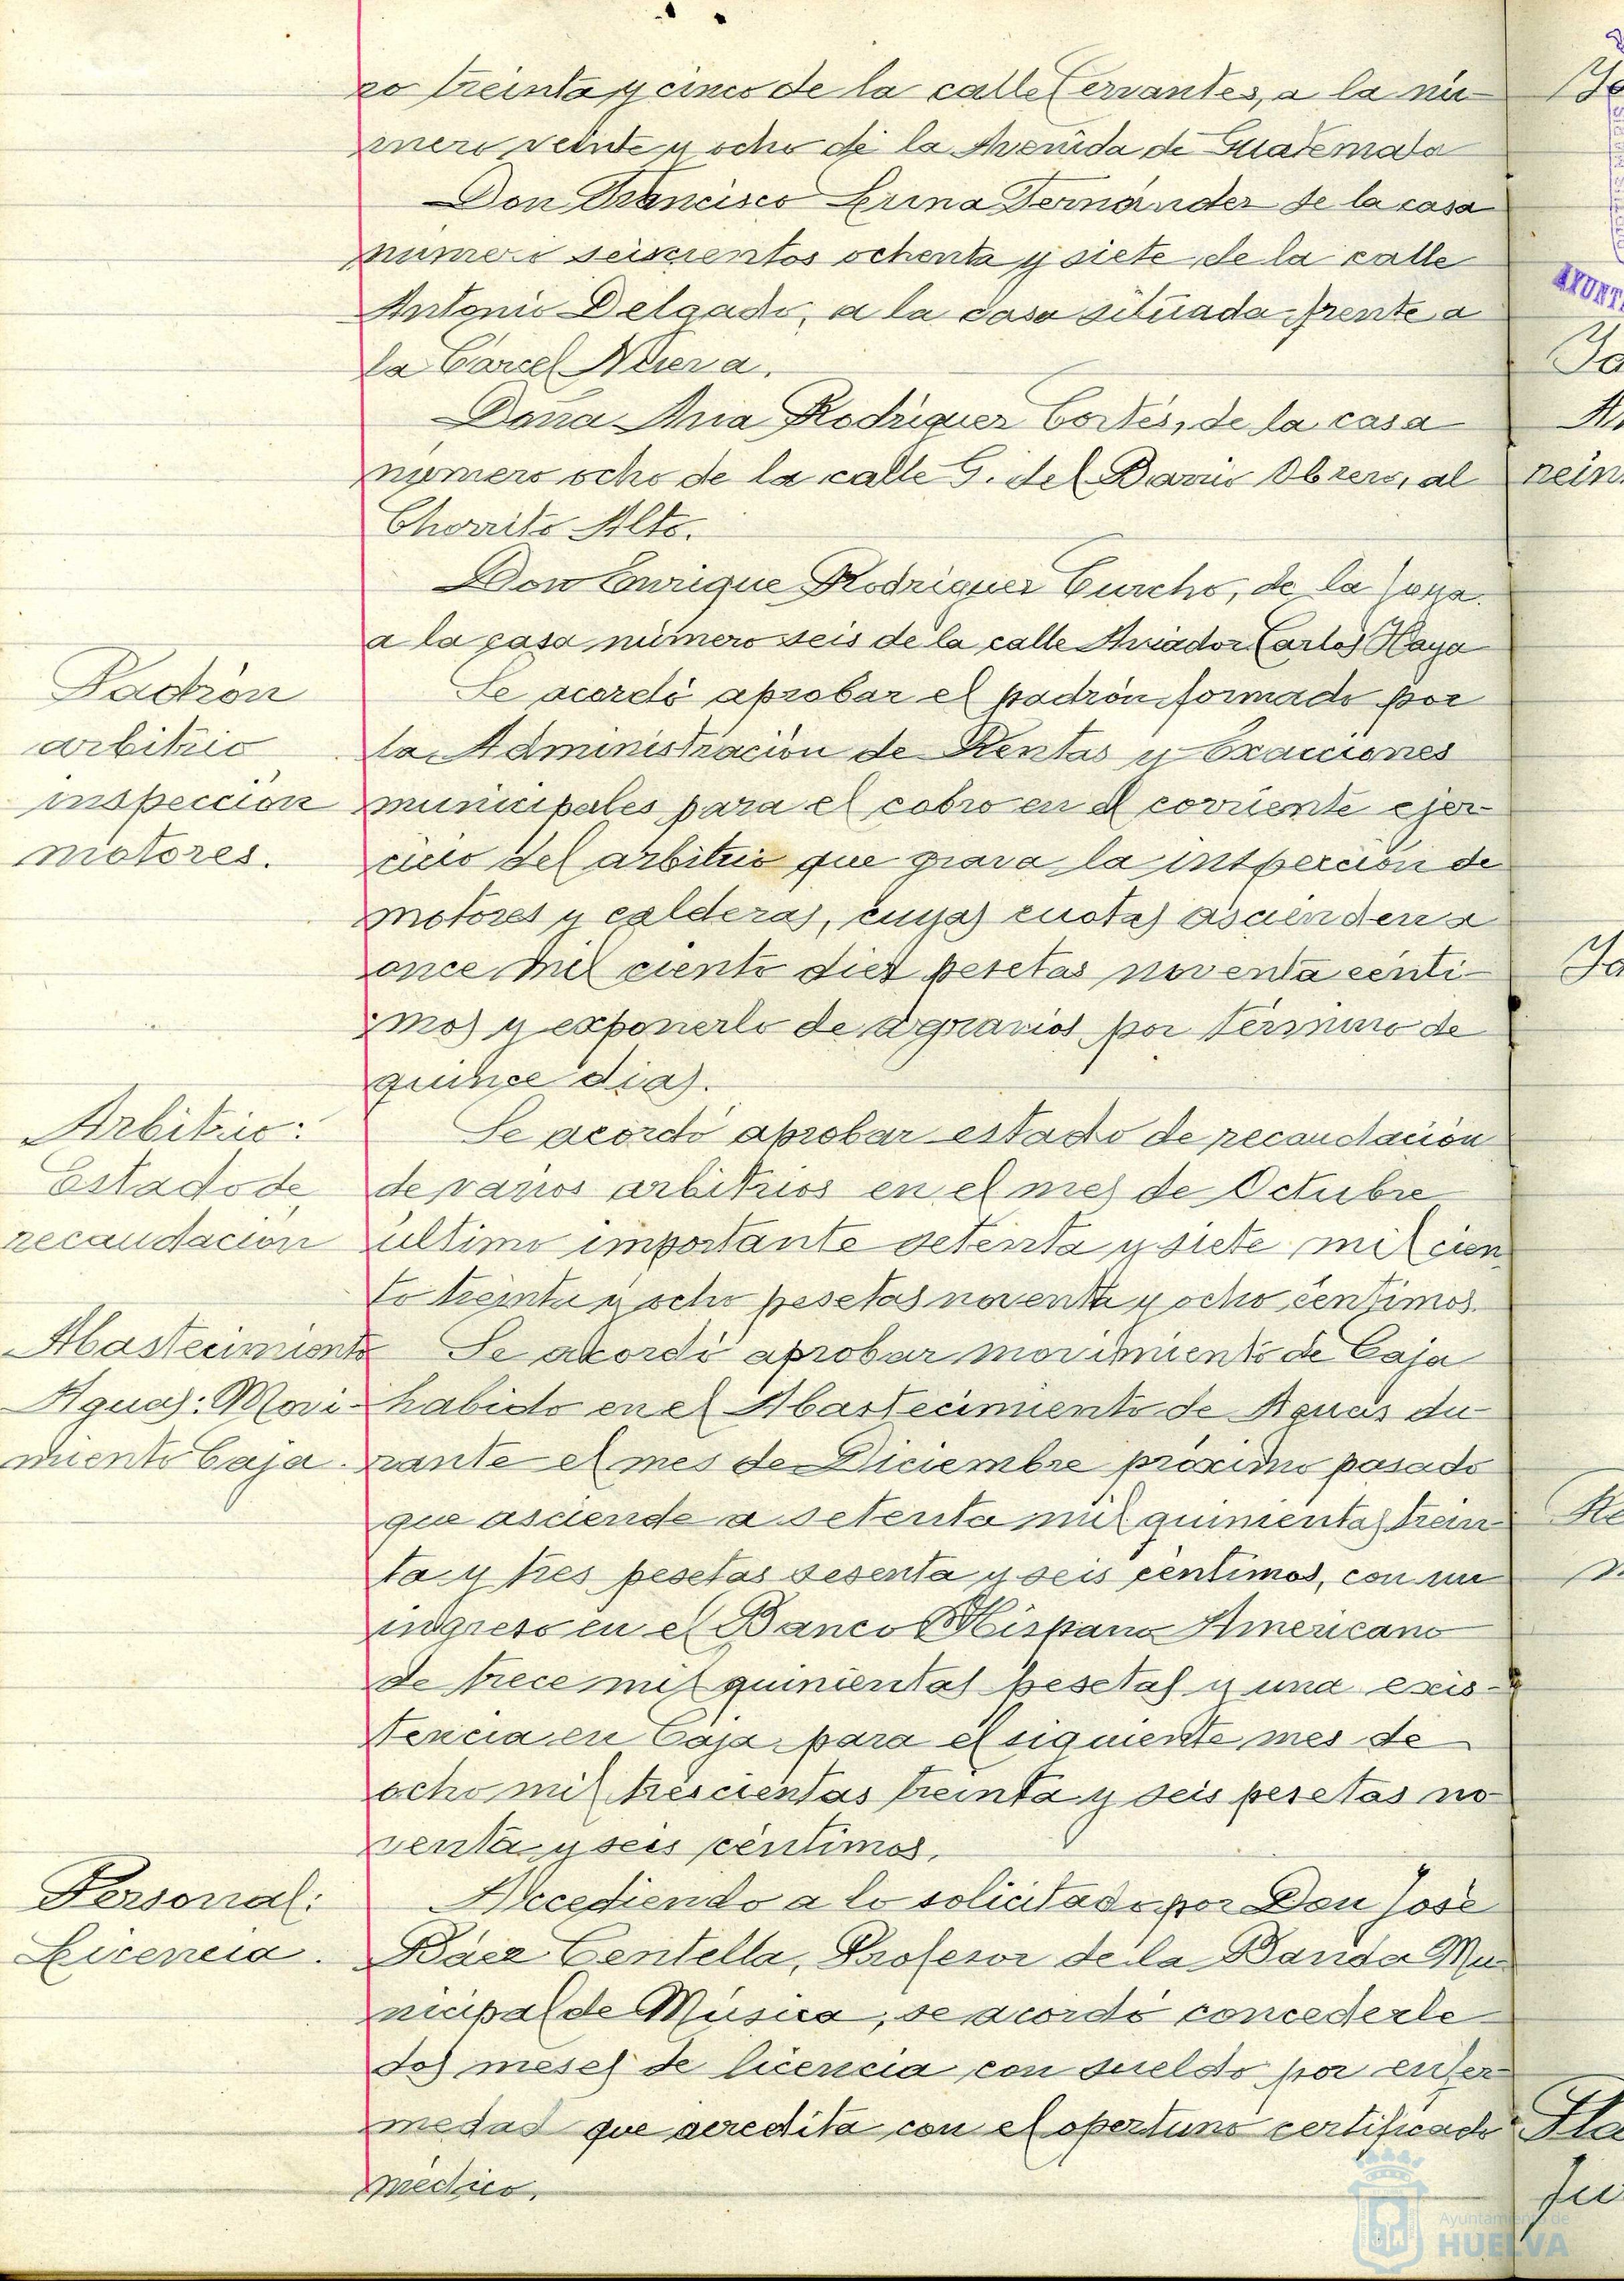 ro treinta y cinco de la calle Cervantes, a la nú-
mero veinte y ocho de la Avenida de Guatemala
Don Francisco Luna Fernández de la casa
número seiscientos ochenta y siete de la calle
Antonio Delgado, a la casa situada frente a
la Carcel Nueva.
Doña Ana Rodríguez Cortés, de la casa
número ocho de la calle G. del Barrio Obrero, al
Chorrito Alto.
Don Enrique Rodríguez Curcho, de la Joya
a la casa número seis de la calle Aviador Carlos Haya
Padrón
arbitrio
inspección
motores.
Se acordó aprobar el padrón formado por
la Administración de Rentas y Exacciones
municipales para el cobro en el corriente ejer-
cicio del arbitrio que grava la instpección de
motores y calderas, cuyas cuotas ascienden a
once mil ciento diez pesetas noventa cénti-
mos y exponerlo de agravios por término de
quince dias.
Arbitrio:
Estado de
recaudación
Se acordó aprobar estado de recaudación
de varios arbitrios en el mes de Octubre
último importante setenta y siete mil cien
to treinta y ocho pesetas noventa y ocho céntimos.
Abastecimiento
Aguas: Movi-
miento Caja.
Se acordó aprobar movimiento de Caja
habido en el Abastecimiento de Aguas du-
rante el mes de Diciembre próximo pasado
que asciende a setenta mil quinientas trein
ta y tres pesetas sesenta y seis céntimos, con un
ingreso en el Banco Hispano Americano
de trece mil quinientas pesetas y una exis-
tencia en Caja para el siguiente mes de
ocho mil trescientas treinta y seis pesetas no
venta y seis céntimos.
Personal:
Licencia.
Accediendo a lo solicitado por Don José
Báez Centella, Profesor de la Banda Mu-
nicipal de Música, se acordó concederle
dos meses de licencia con sueldo por enfer
medad que acredita con el oportuno certificado
médico.
Ayuntamiento de
HUELVA